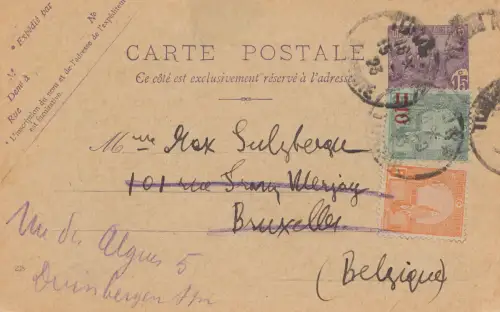 N°
* Expédié par
M
Dem.t à
Rue
* L'inscription du nom et de l'adresse de l'expéditeur est facultative.
CARTE POSTALE
Ce côté est exclusivement réservé à l'adresse.
15
10
Mme Max Sulzberger
101 rue Franz Merjay
Bruxelles
(Belgique)
Rue des Algues 5
Duinbergen